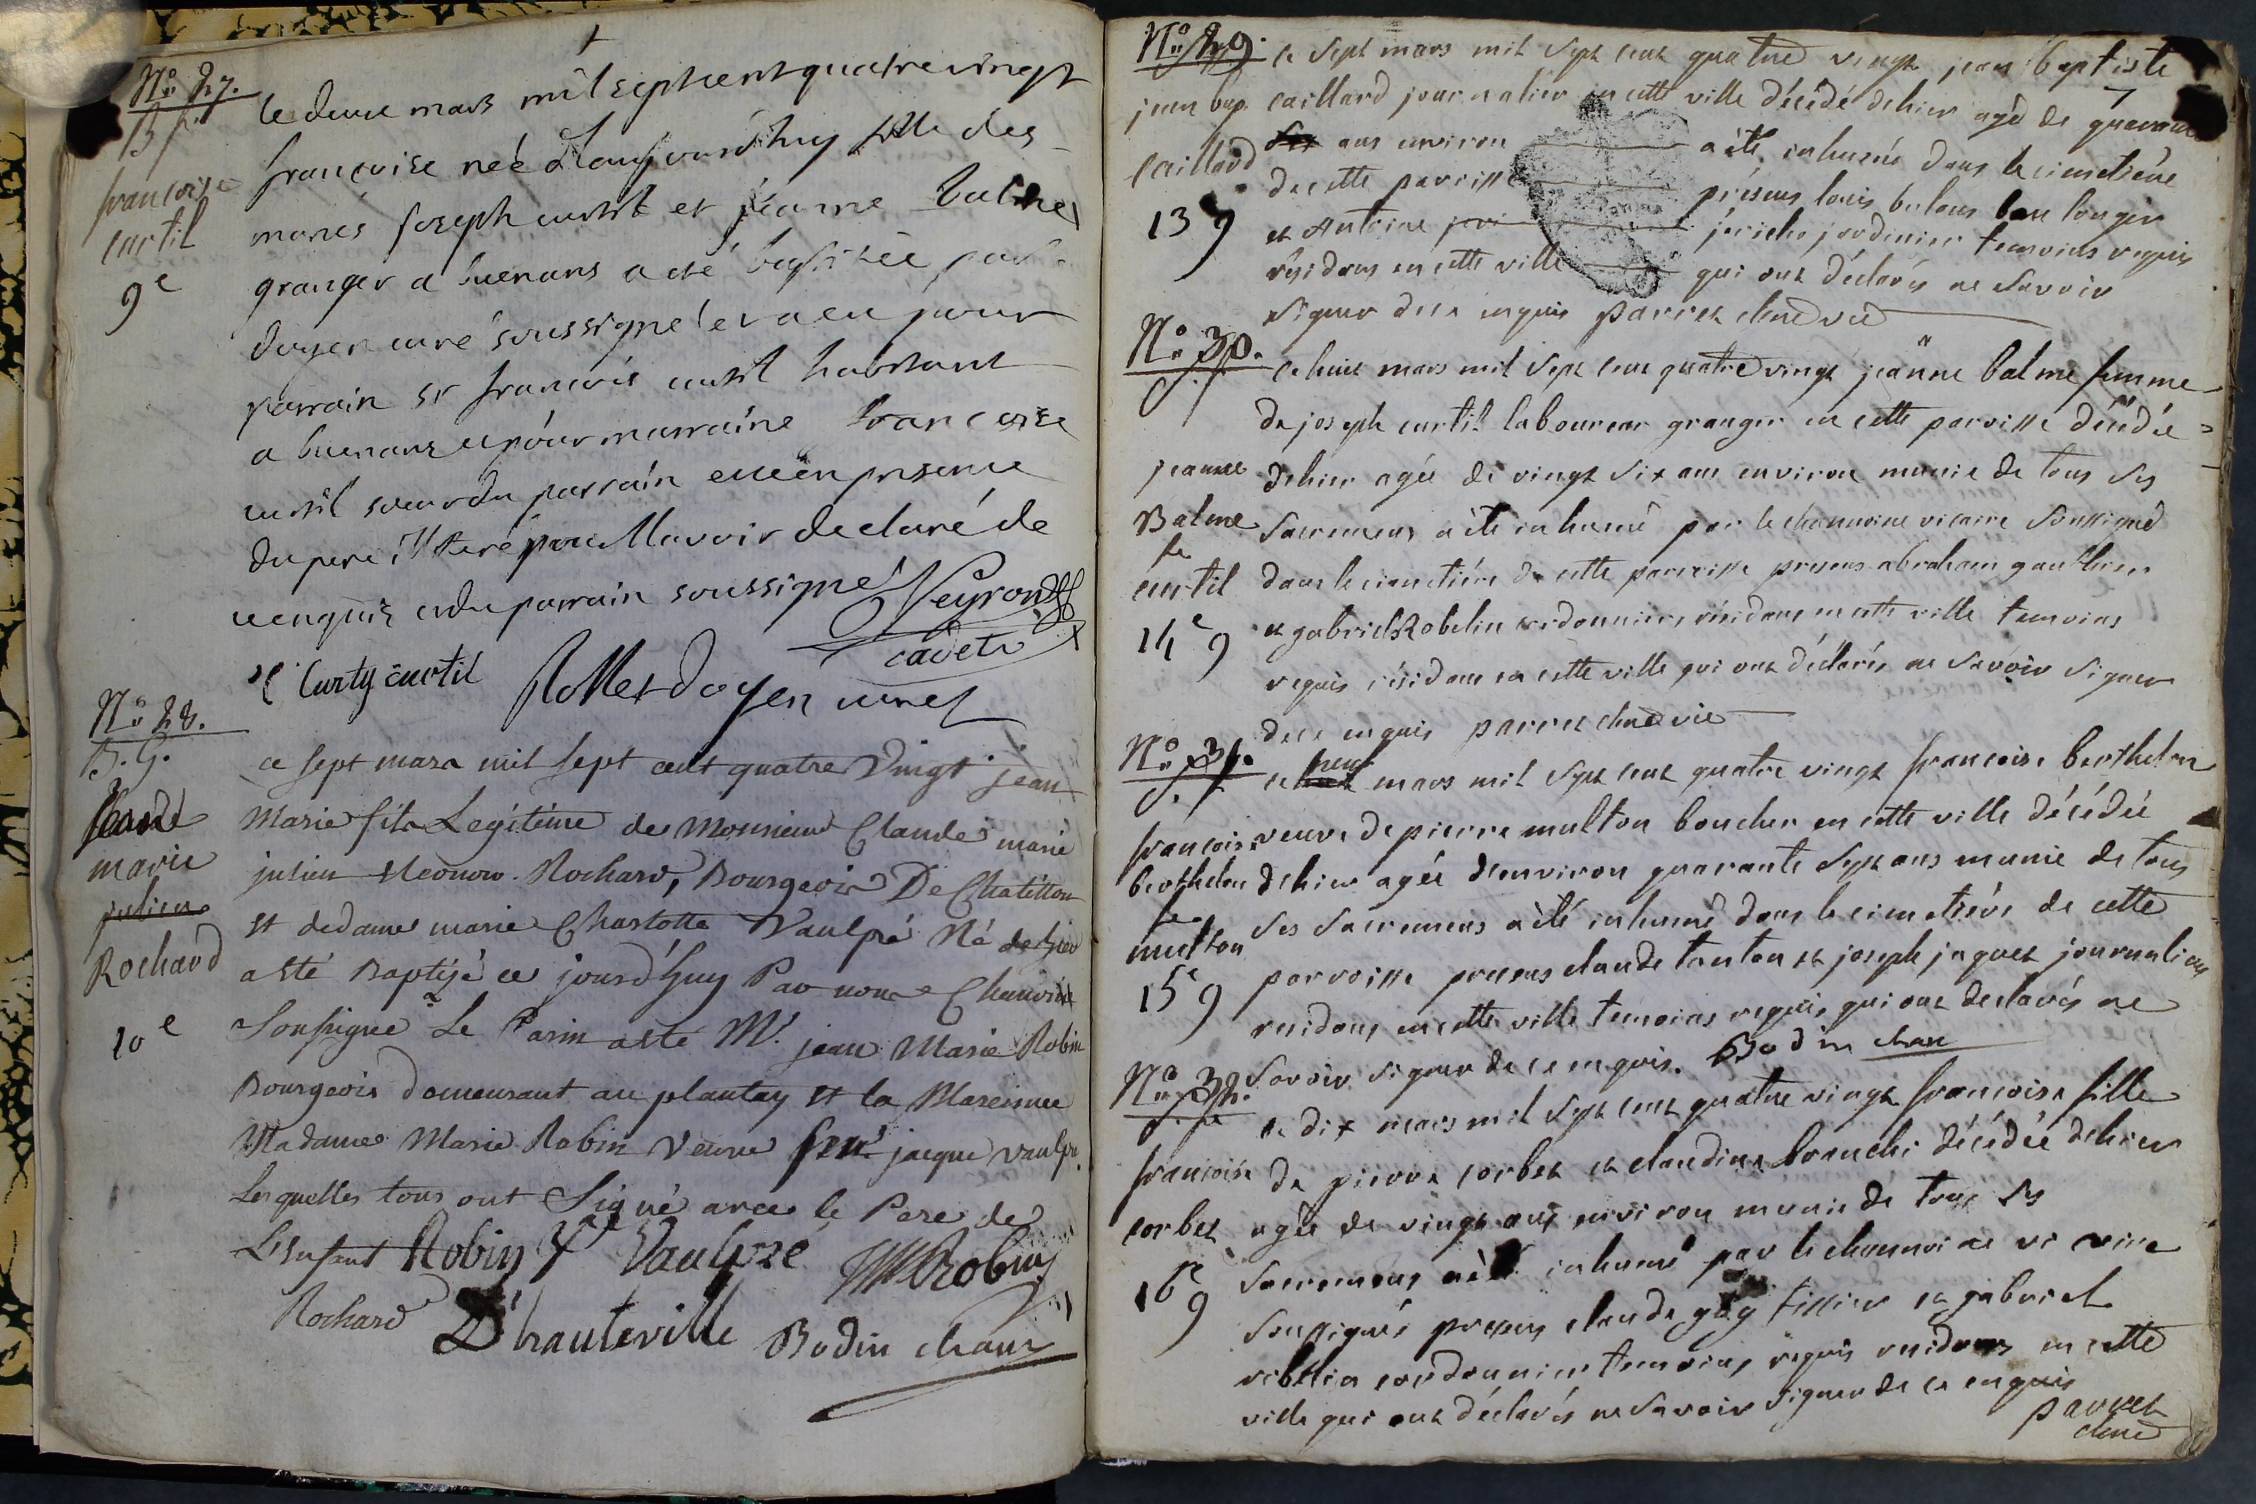 Nº 27.
B. f.
françoise
curtil
9e
le deux mars mil sept cent quatre vingt
françoise neé d'aujourd'huy fille des
mariés joseph curtil et jéanne balme
granger a buenans a eté baptisée par
doyen curé soussigné et a eu pour
parrain sr françois curtil habitant
a buenans et pour marraine francoise
curtil soeur du parrain et en presence
du pere illiteré pour l'avoir declaré de
ce enquis et du parrain soussigné Peyrond
cadet
Curty curtil Rollet doyen curé
Nº 28.
B. G.
jean
marie
julien
Rochard
10e
ce sept mars mil sept cent quatre Vingt jean
Marie fils Legitime de Monsieur Claude marie
julien Rochard, Bourgeois De Chatillon
et de dame marie Charlotte Vaulpré Né de hier
a été Baptisé ce jourd'huy Par nous Chanoine
Soussigné Le Parin a eté Mr. jean Marie Robin
Bourgeois demeurant au plantay et la Mareinne
Madame Marie Robin Veuve jacque vaulpré
Lesquelles tous ont Signé avec le Pere de
L'Enfant Robin Ve Vaulpré JM Robin
Rochard D'hauteville Bodin chan
Nº 29.
jean bap.
Caillard
13 9
le Sept mars mil Sept cent quatre vingt jean baptiste
Caillard journalier en cette ville décédé dehier agé de quarante
Six ans environ a été inhumé dans le cimetiere
de cette parroisse présens louis bulons boulonger
et Antoine jeri jericho jardinier temoins requis
résidans en cette ville qui ont déclarés ne Savoir
Signer de ce enquis parret chne vic
Nº 30.
S. f.
jeanne
Balme
fe
curtil
14e 9
le huit mars mil Sept cent quatre vingt jeanne balme femme
de joseph curtil laboureur granger en cette parroisse décédée
dehier agée de vingt Six ans environ munie de tous Ses
Sacremens a été inhumé par le chanoine vicaire Soussigné
dans le cimetière de cette parroisse presens abraham gauthier
et gabriel Robelin cordonniers résidans en cette ville temoins
requis résidans en cette ville qui ont déclarés ne Savoir Signer
de ce enquis parret chne vic
Nº 31.
S. f.
françoise
berthelon
fe
multon
15e 9
le huit neuf mars mil Sept cent quatre vingt francoise berthelon
veuve de pierre multon boucher en cette ville décédée
dehier agée d'environ quarante Sept ans munie de tous
Ses Sacremens a été inhumé dans le cimetiere de cette
parroisse presens claude tonton et joseph jaquet journaliers
residans en cette ville temoins requis qui ont declarés ne
Savoir Signer de ce enquis. Bodin chan
Nº 32.
S. f.
francoise
corbet
16e 9
le dix mars mil Sept cent quatre vingt francoise fille
de pierre corbet et claudine branche décédée dehier
agée de vingt ans environ munie de tous Ses
Sacremens a été inhumé par le chanoine vicaire
Soussigné presens claude gay tissier et gabriel
roblin cordonnier temoins requis residans en cette
ville qui ont déclarés ne Savoir Signer de ce enquis
parret
chne